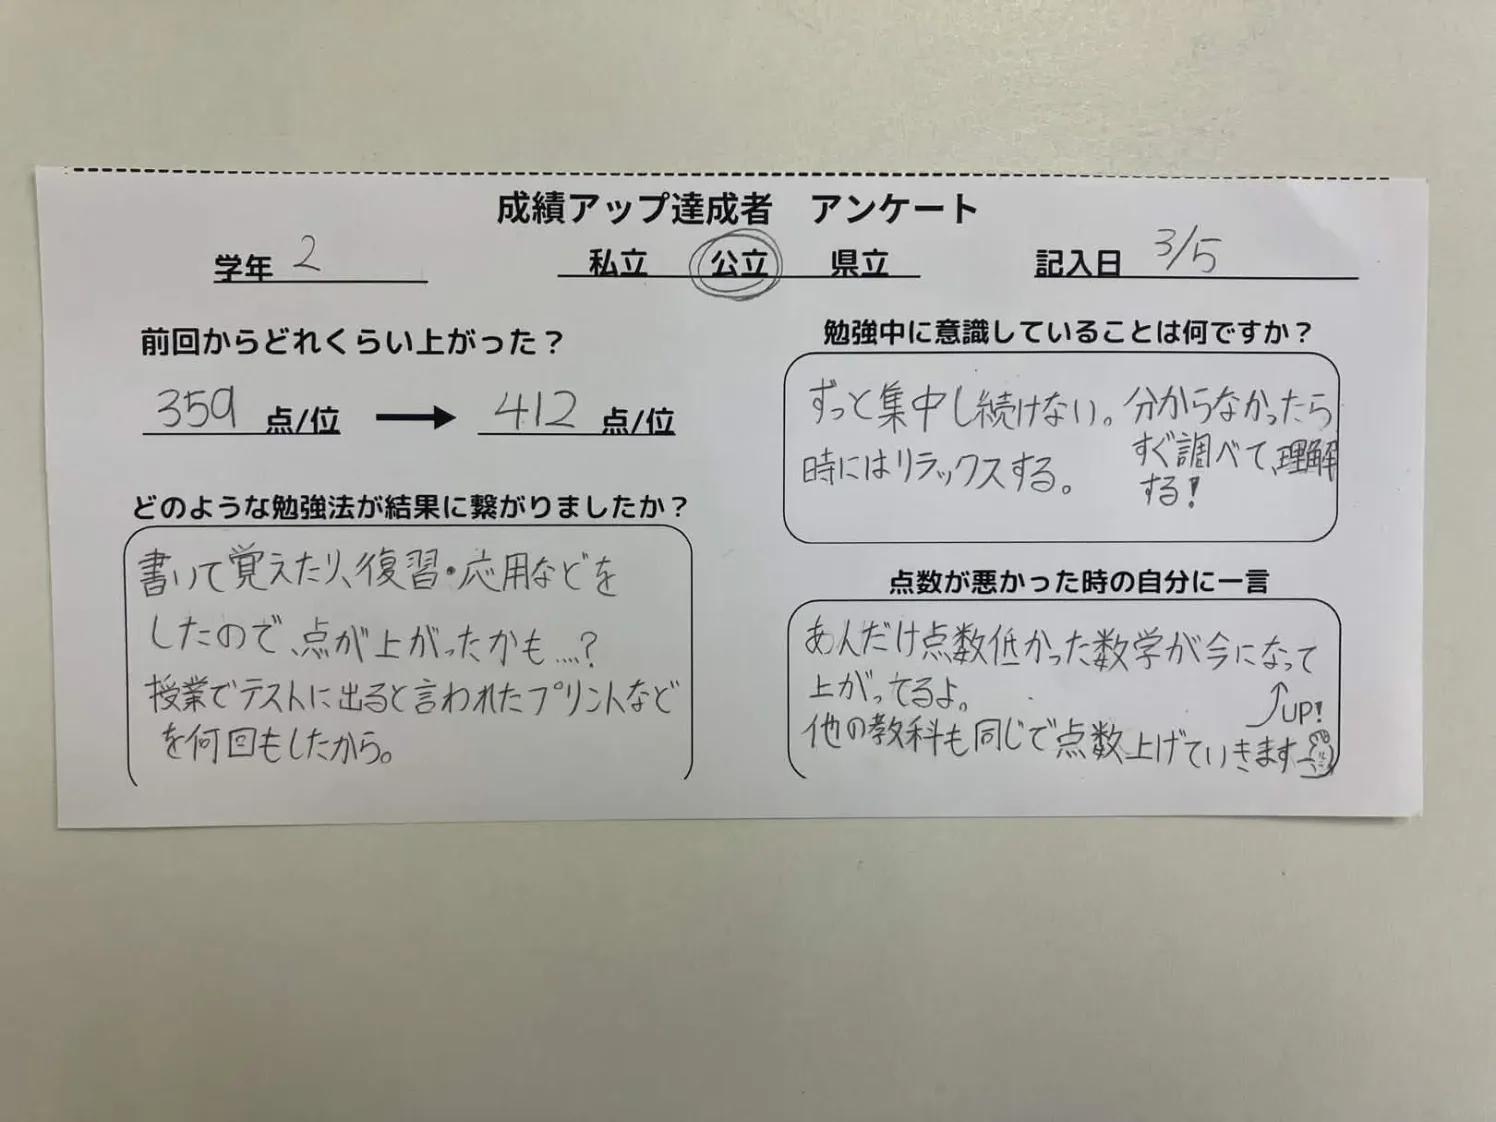 成績アップ達成者 アンケート
学年 2
私立 公立 県立
記入日 3/5
前回からどれくらい上がった？
359 点/位 → 412 点/位
どのような勉強法が結果に繋がりましたか？
書いて覚えたり、復習・応用などを
したので、点が上がったかも...?
授業でテストに出ると言われたプリントなど
を何回もしたから。
勉強中に意識していることは何ですか？
ずっと集中し続けない。
時にはリラックスする。
分からなかったら
すぐ調べて、理解
する!
点数が悪かった時の自分に一言
あんだけ点数低かった数学が今になって
上がってるよ。
UP!
他の教科も同じで点数上げていきます